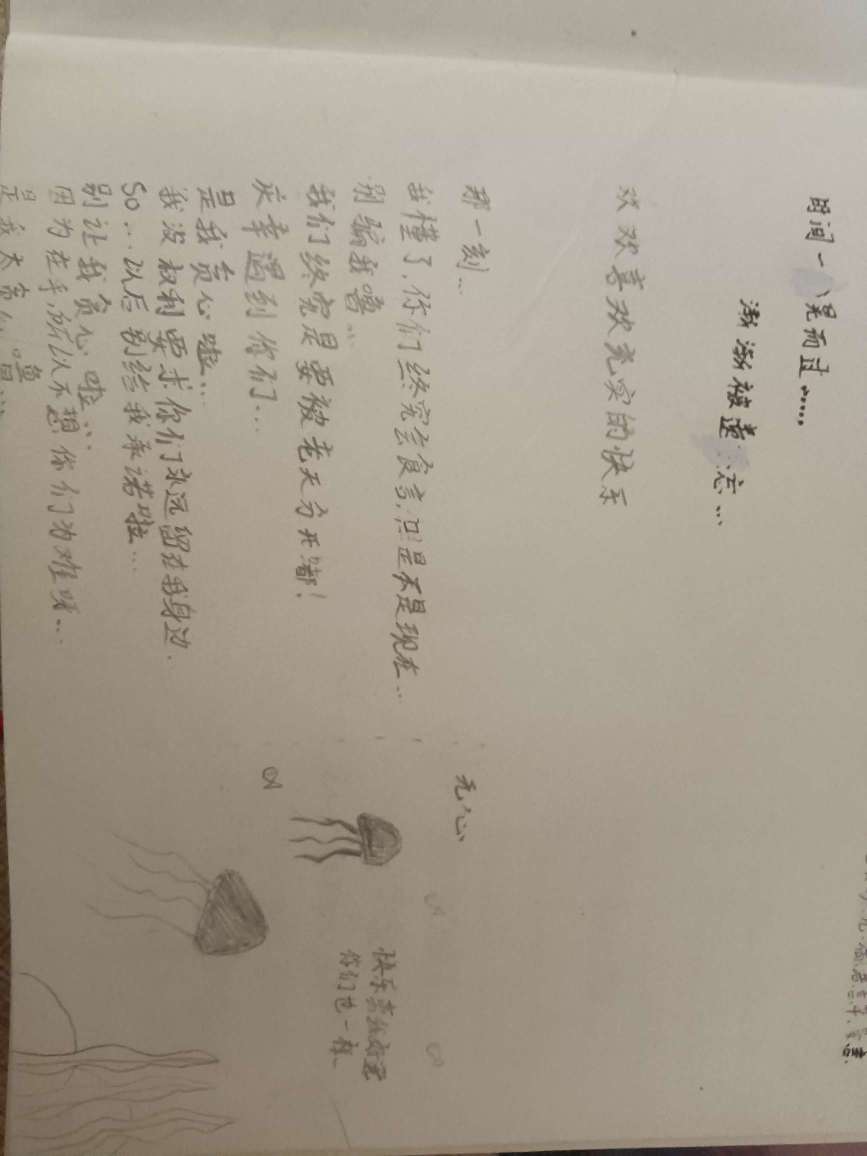 时间一晃而过……
渐渐被遗忘…
欢欢喜欢充实的快乐
那一刻…
我懂了,你们终究会食言,只是不是现在…
别骗我噜…
我们终究是要被老天分开嘟!
庆幸遇到你们…
是我贪心啦…
我没权利要求你们永远留在我身边.
So…以后别给我承诺啦…
别让我贪心啦…
因为在乎,所以不想你们为难哦…
是我太贪心噜…
无心
快乐
你们也一样